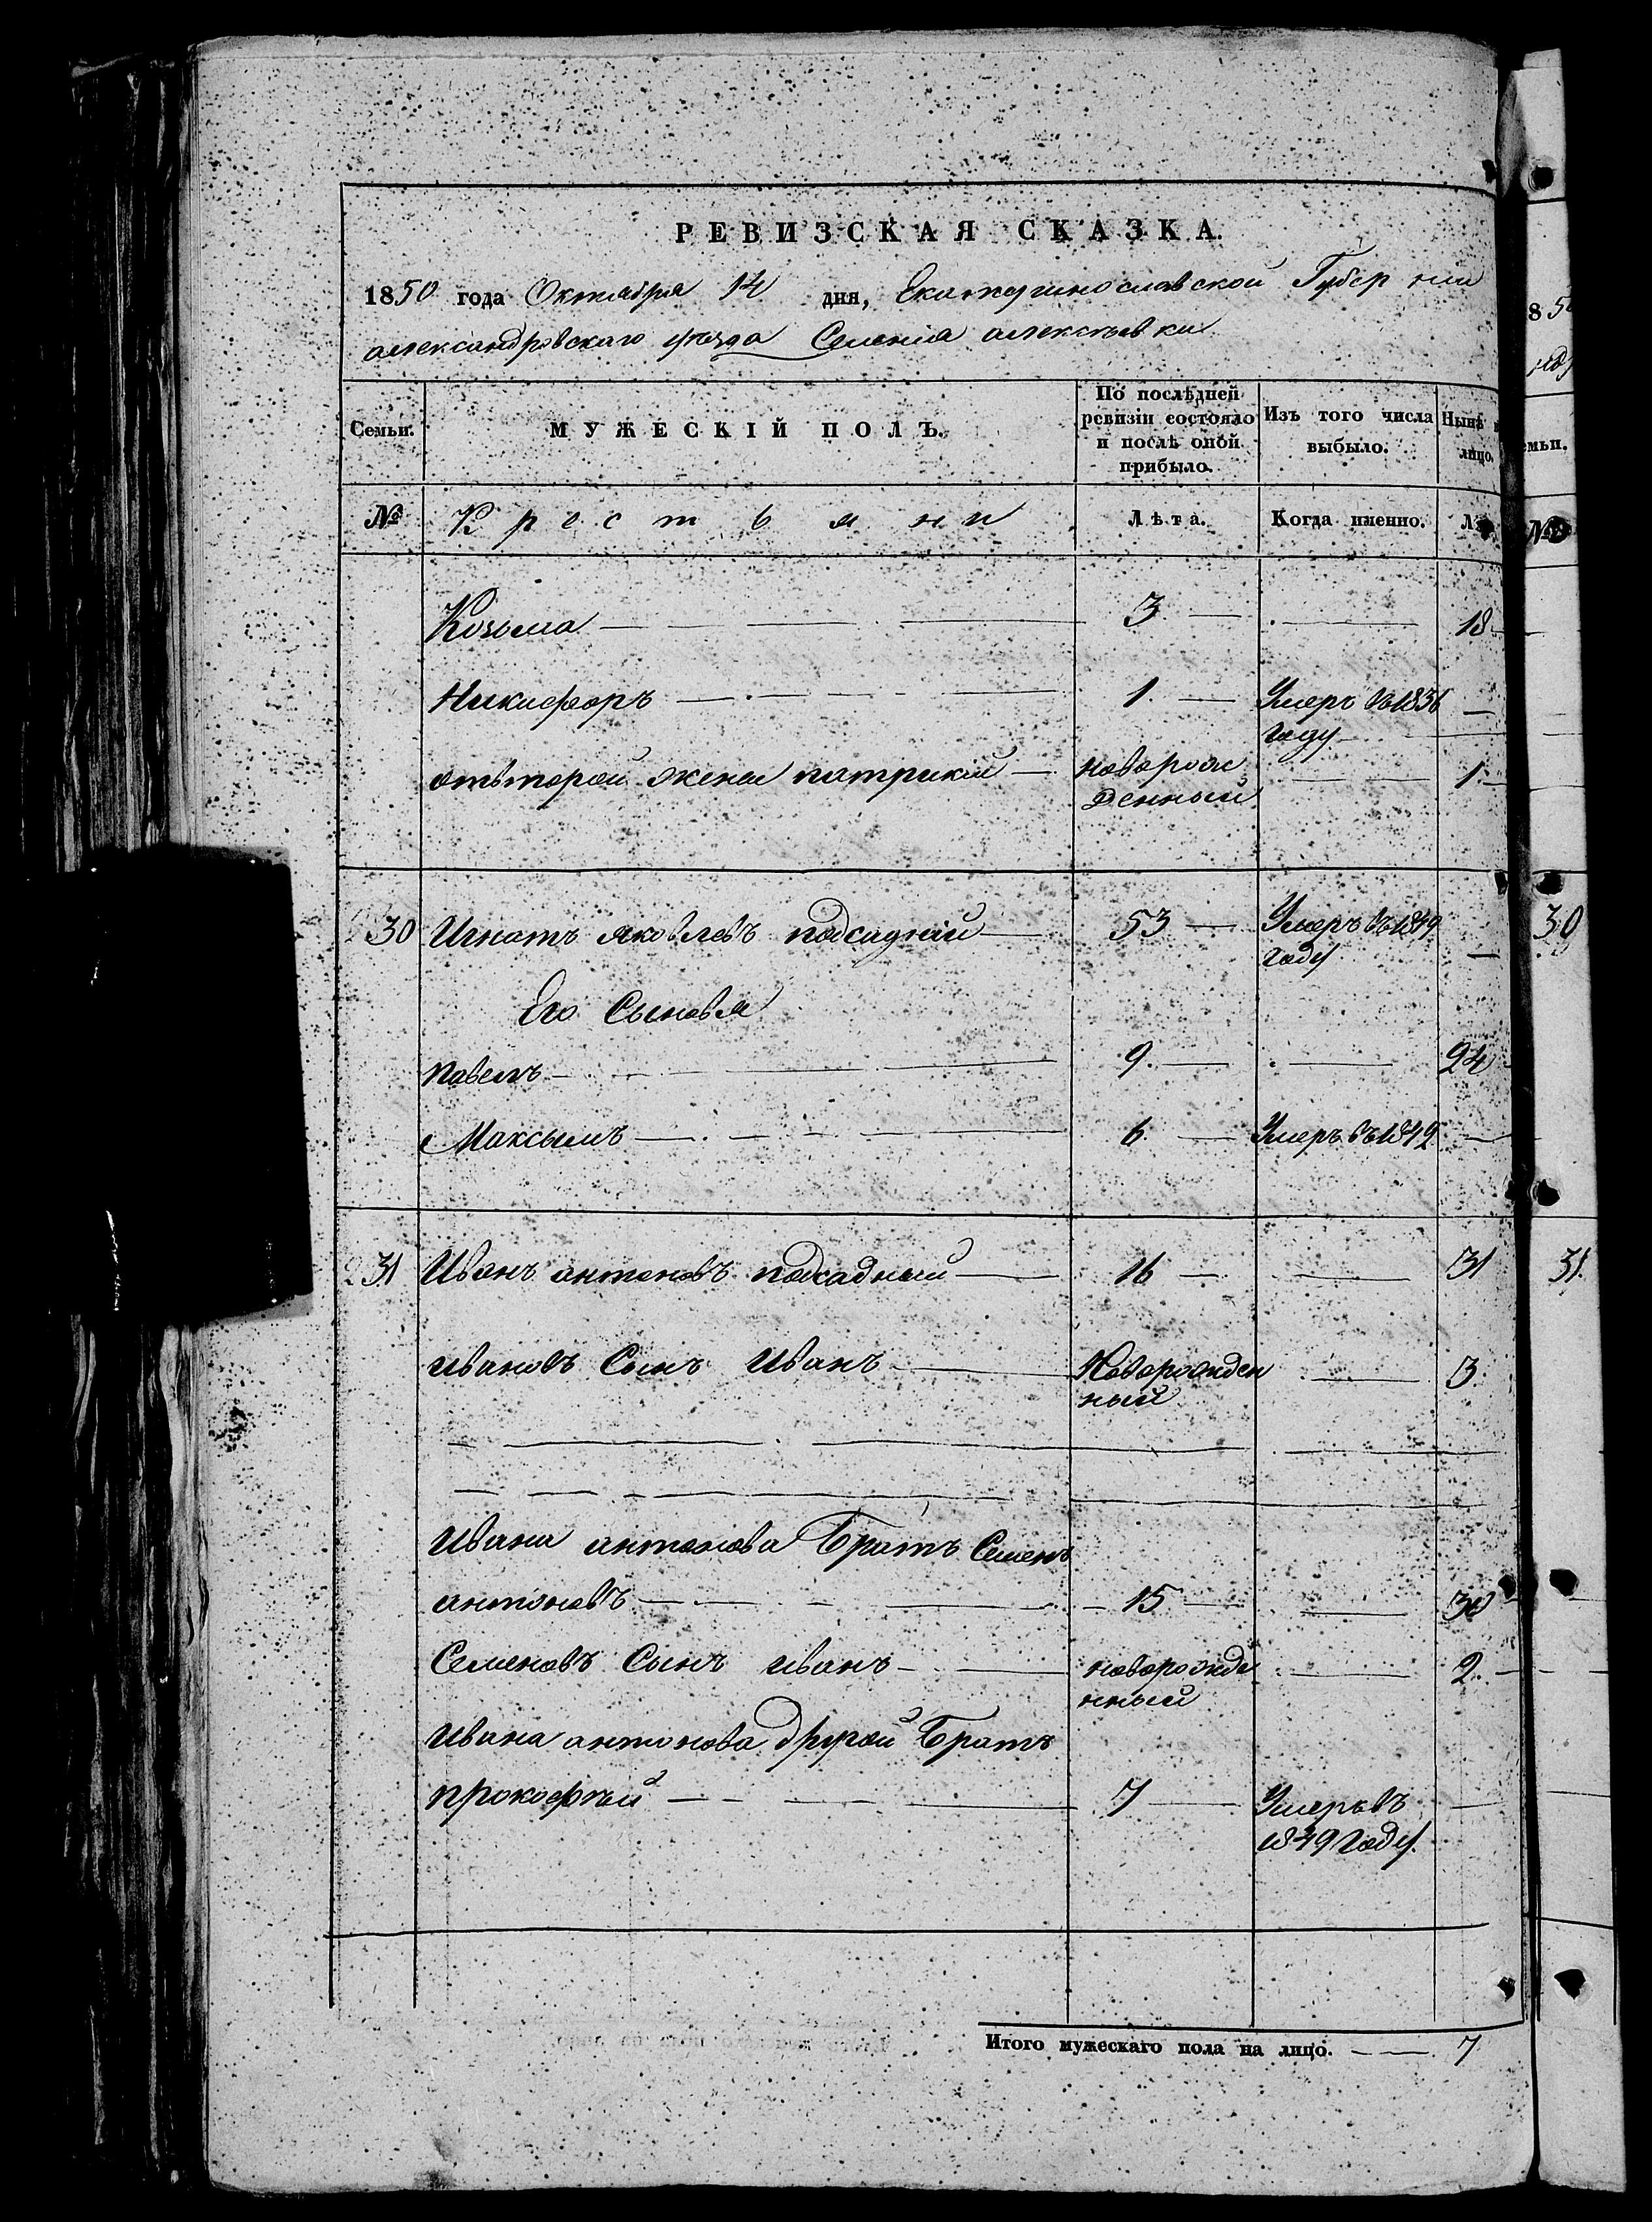 РЕВИЗСКАЯ СКАЗКА.
1850 года Октября 14 дня, Екатеринославской Губернии
александровскаго уѣзда Селенія алексѣевки
Семьи. МУЖЕСКІЙ ПОЛЪ. По послѣдней ревизіи состояло и послѣ оной прибыло. Изъ того числа выбыло. Нынѣ лицо.
№ Крестьяни Лѣта. Когда именно. Л
Козьма 3 18
Никифоръ 1 Умеръ въ 1836
году
отвторой жены патрикій новорож 1
денный
30 Игнатъ яковлевъ подсадній 53 Умеръ въ 1849
году
Его Сыновья
павелъ 9 24
Максымъ 6 Умеръ въ 1849
31 Иванъ антоновъ подсадный 16 31
ивановъ Сынъ Иванъ Новорожден 3
ный
Ивана антонова Братъ Семенъ
антоновъ 15 30
Семеновъ Сынъ иванъ новорожде 2
нный
Ивана антонова другой Братъ
прокофѣй 7 Умеръ въ
1849 году.
Итого мужескаго пола на лицо. 7
850
емьи.
№
30
31.